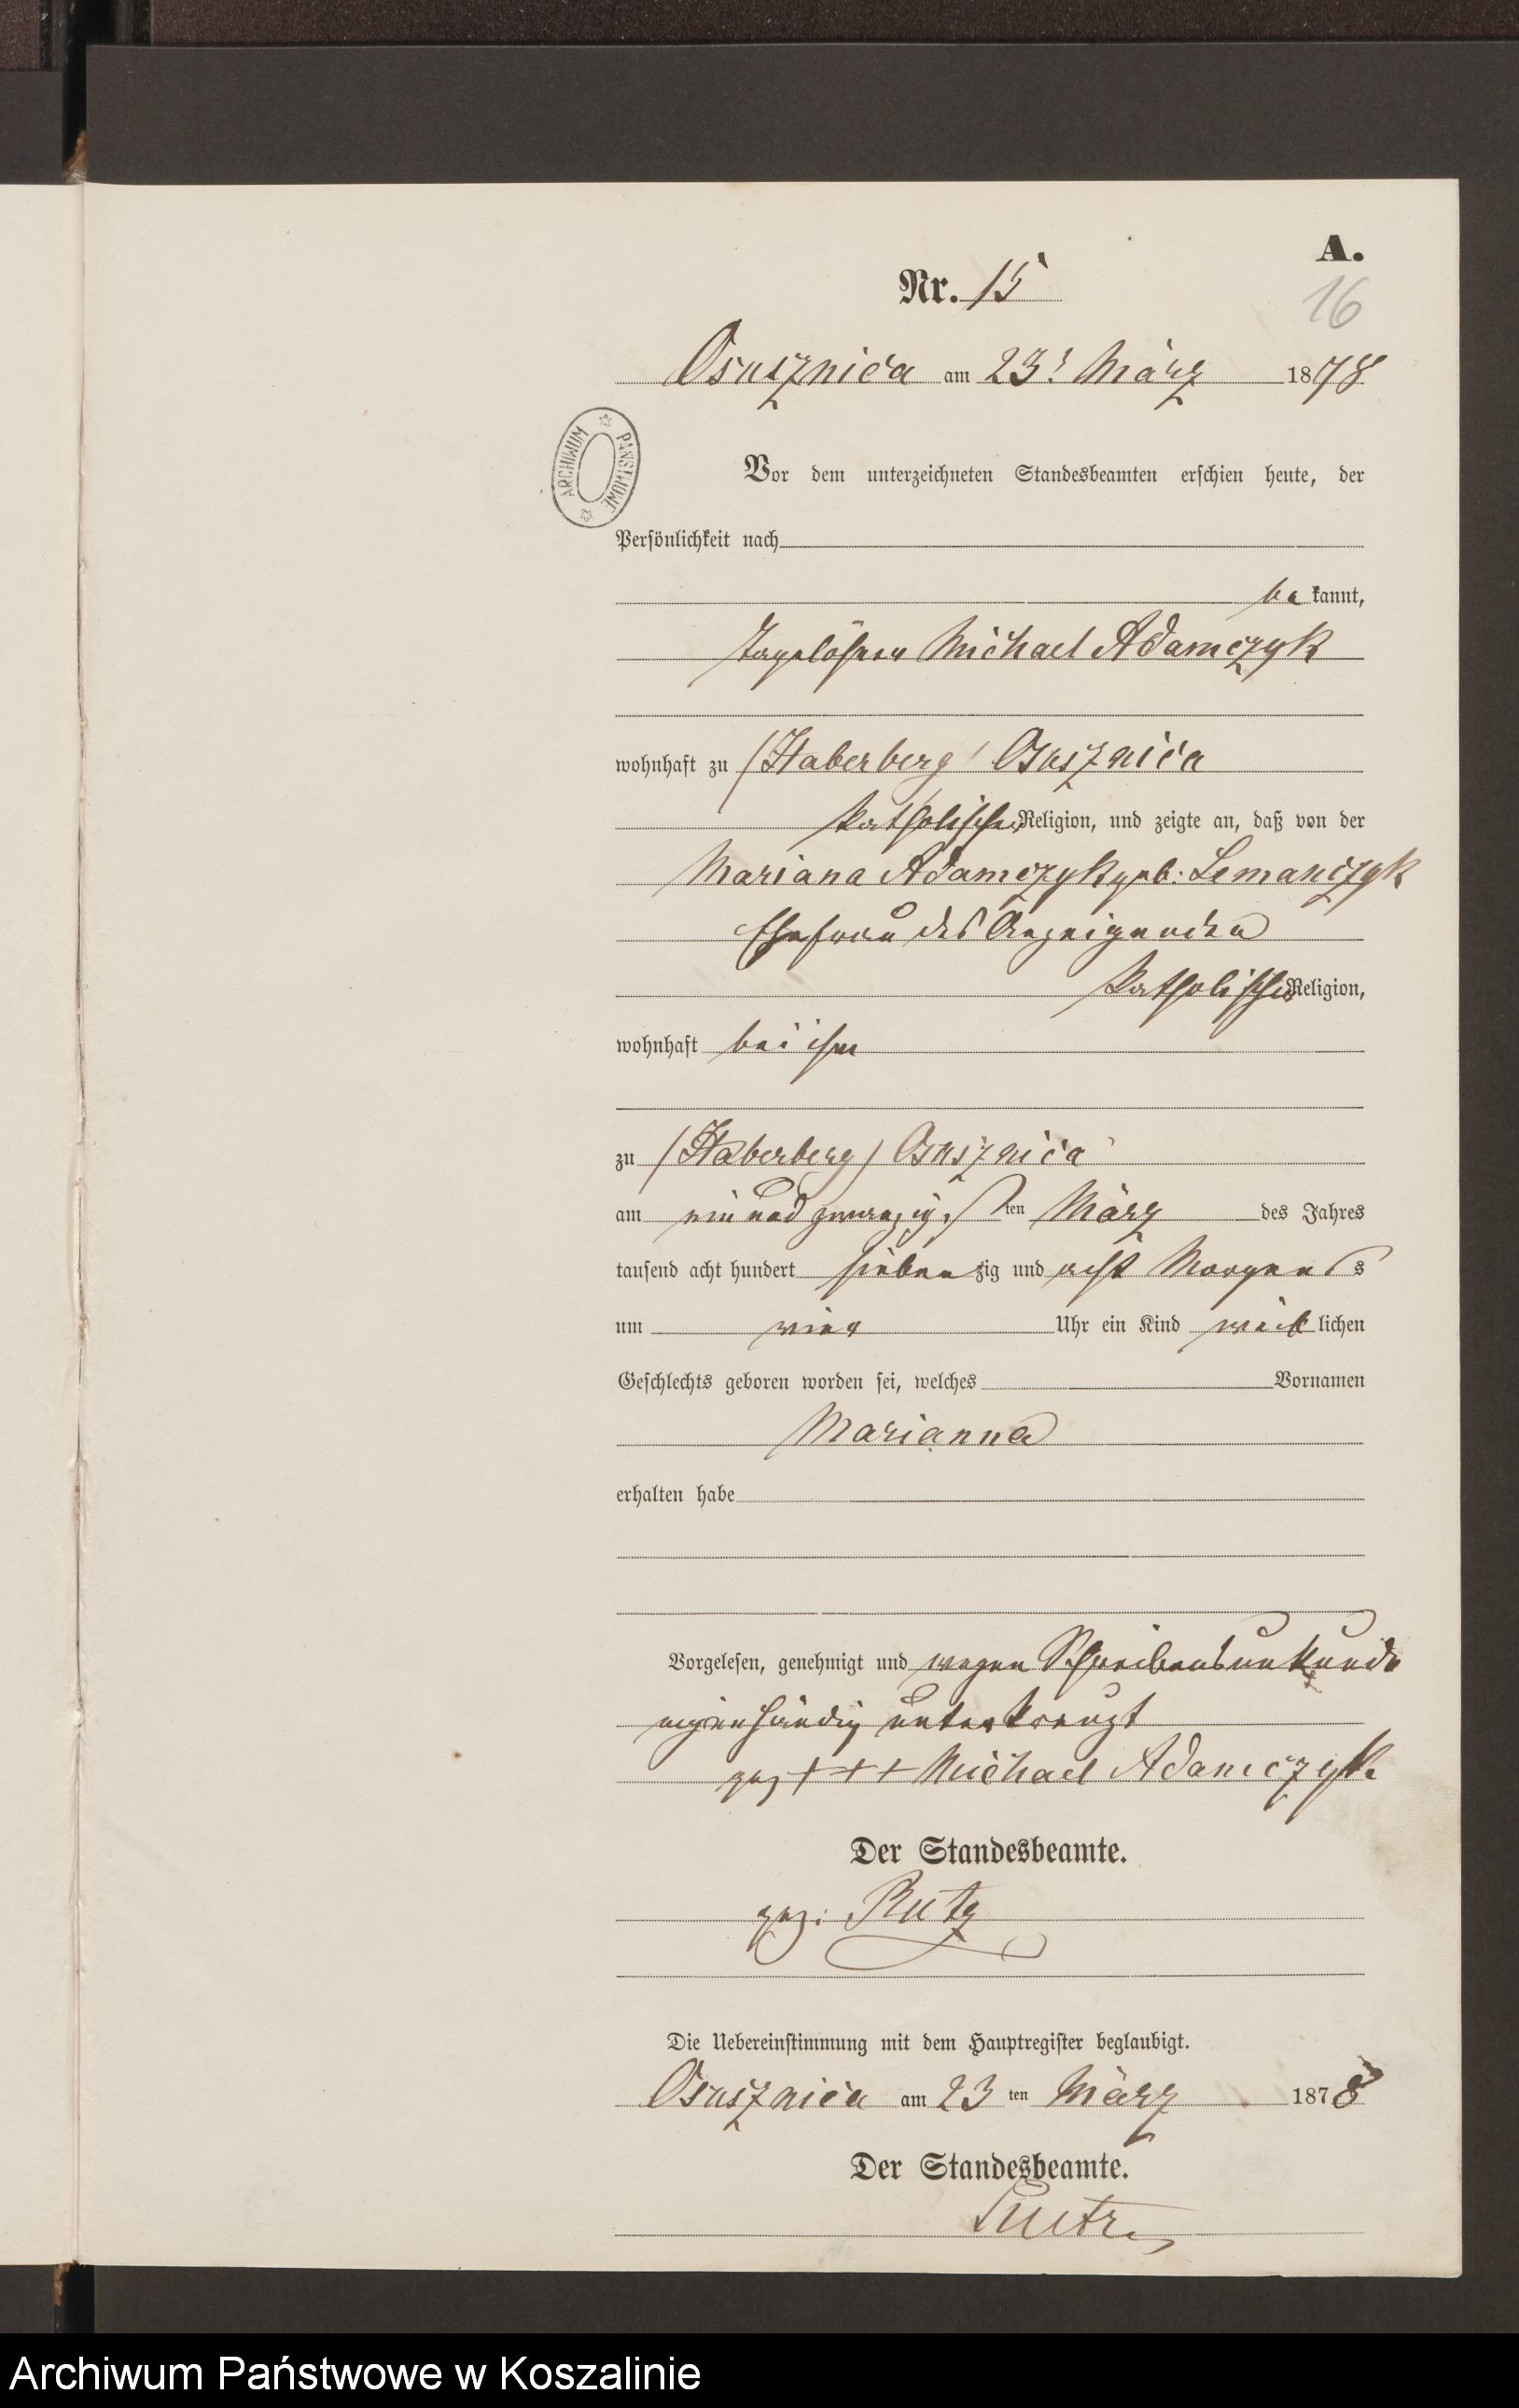 A.
Nr. 15
16
Osusznica am 23t März 1878
ARCHIWUM PAŃSTWOWE
Vor dem unterzeichneten Standesbeamten erschien heute, der
Persönlichkeit nach
be kannt,
Tagelöhner Michael Adamczyk
wohnhaft zu (Haberberg) Osusznica
katholischer Religion, und zeigte an, daß von der
Mariana Adamczyk geb: Lemanczyk
Ehefrau des Anzeigenden
katholischer Religion,
wohnhaft bei ihm
zu (Haberberg) Osusznica
am ein und zwanzigs ten März des Jahres
tausend acht hundert sieben zig und acht Morgens s
um vier Uhr ein Kind weib lichen
Geschlechts geboren worden sei, welches Vornamen
Marianna
erhalten habe
Vorgelesen, genehmigt und wegen Schreibensunkunde
eigenhändig unterkreuzt
gez +++ Michael Adamczyk
Der Standesbeamte.
gez: Rutz
Die Uebereinstimmung mit dem Hauptregister beglaubigt.
Osusznica am 23 ten März 1878
Der Standesbeamte.
Rutz
Archiwum Państwowe w Koszalinie